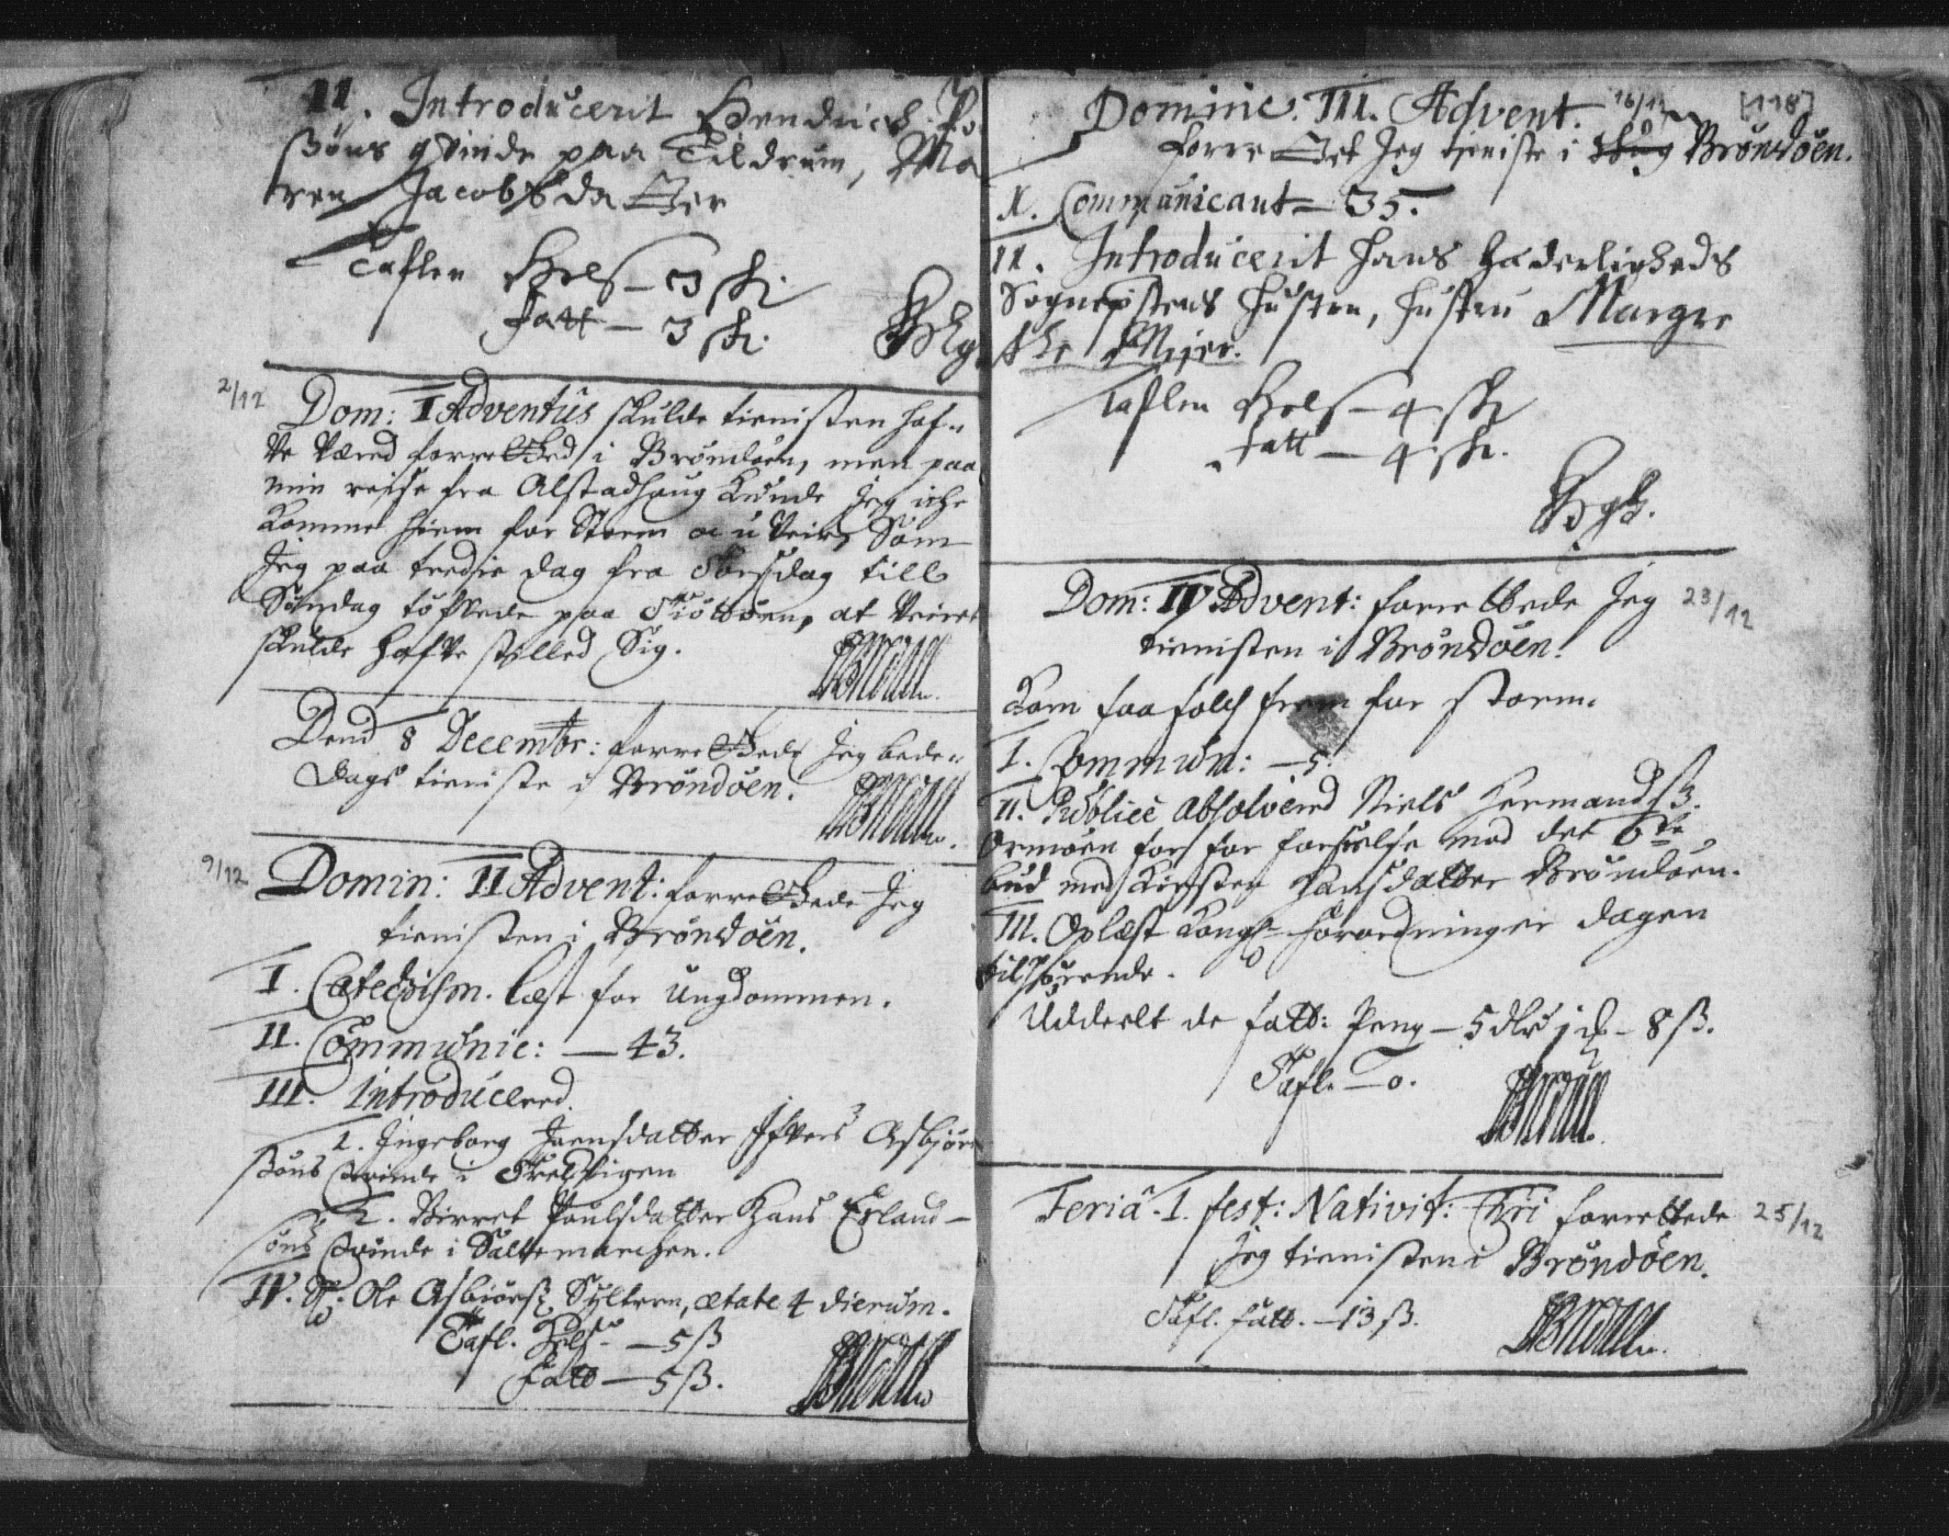 II. Introducerit Hendrich Po
ßøns qvinde paa Tildrum, Ma
ren Jacobsdatter
Taflen Hels – 3 sk.
fatt – 3 sk.
2/12 Dom: I Adventûs skulde tienisten haf-
ve væred forretted i Brøndøen, men paa
min reise fra Alstadhaug kunde jeg iche
komme hiem for Storm oc u-veir, Som
Jeg paa tredie dag fra Torsdag till
Søndag tøfvede paa Tiøttøen, at veiret
skulde hafve stilled Sig.
Dend 8 Decembr: forrettede Jeg bede-
dags tieniste i Brøndøen.
9/12 Domin: II Advent: forrettede Jeg
tienisten i Brøndøen.
I. Catechism. læst for ungdommen.
II. Communic: – 43.
III. Introducered.
1. Ingeborg Jensdatter Ifvers Asbjørn
ßøns qvinde i Skelvigen
2. Birret Poulsdatter Hans Erland-
søns qvinde i Saltemarchen.
IV. Sp. Ole Asbiørß. Sylteren, ætate 4 dierum.
Tafl. Hels. – 5 ß
Fatt – 5 ß.
Dominic. III. Advent. 16/12 [118]
forrettet Jeg tieniste i Brøndøen.
I. Communicant – 35.
II. Introducerit Hans Hæderligheds
Sognepstens Hustru, hustru Margre
the Meier.
Taflen Hels – 4 sk
fatt – 4 sk.
Dom: IV Advent: forrettede Jeg 23/12
tienisten i Brøndøen.
Kom faa folch frem for storm.
I. Commun: – 5.
II. Publicè absolvered Niels Hermandß.
Ormøen for forseelse mod det 6te
bud med Kirsten Hansdatter Brøndøen.
III. Oplæst Kongl. forordninger dagen
tilhørende.
Uddeelt de fatt: Peng – 5 dlr 1 – 8 ß.
Tafl. – 0.
Feriâ. 1. fest: Nativit: Chri forrettede 25/12
Jeg tienisten i Brøndøen.
Tafl. fatt. – 13 ß.